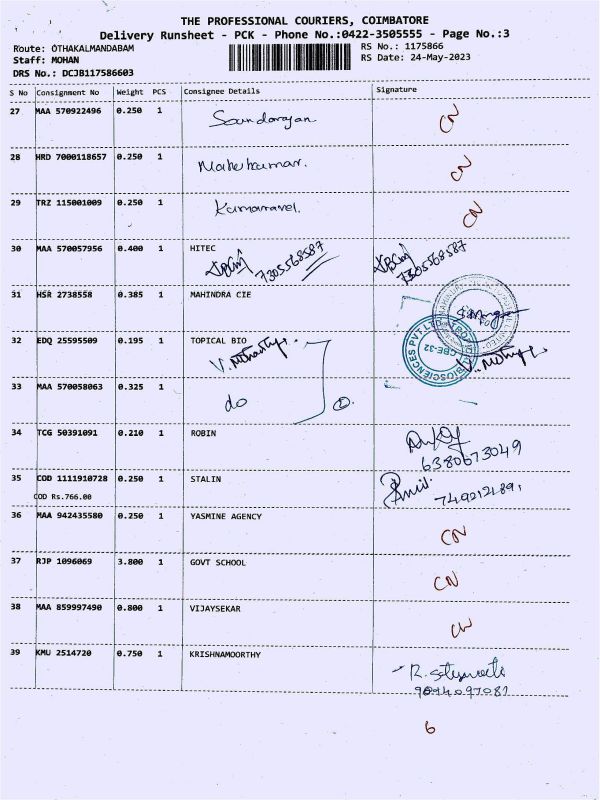 THE PROFESSIONAL COURIERS, COIMBATORE
Delivery Runsheet - PCK - Phone No.:0422-3505555 - Page No.:3
Route: OTHAKALMANDABAM
RS No.: 1175866
Staff: MOHAN
RS Date: 24-May-2023
DRS No.: DCJB117586603
S No Consignment No Weight PCS Consignee Details Signature
27 MAA 570922496 0.250 1 Soundarajan CN
28 HRD 7000118657 0.250 1 CN
29 TRZ 115001009 0.250 1 CN
30 MAA 570057956 0.400 1 HITEC
7305568587 7305568587
31 HSR 2738558 0.385 1 MAHINDRA CIE
32 EDQ 25595509 0.195 1 TOPICAL BIO
BIOSCIENCES PVT LTD
CBE-32
33 MAA 570058063 0.325 1
do 2
34 TCG 50391091 0.210 1 ROBIN
6380673049
35 COD 1111910728 0.250 1 STALIN
COD Rs.766.00
36 MAA 942435580 0.250 1 YASMINE AGENCY
CN
37 RJP 1096069 3.800 1 GOVT SCHOOL
CN
38 MAA 859997490 0.800 1 VIJAYSEKAR
CN
39 KMU 2514720 0.750 1 KRISHNAMOORTHY
6